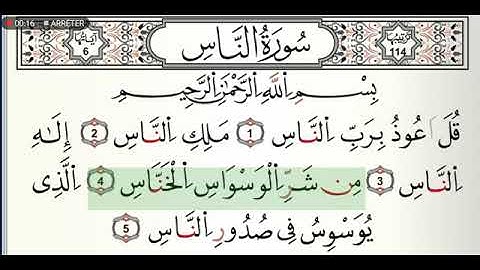 00:16 ■ ARRÊTER
ترتيبها 114 سُورَةُ النَّاسِ آياتها 6
بِسْمِ اِ۬للَّهِ اِ۬لرَّحْمَٰنِ اِ۬لرَّحِيمِ
قُلَ اَعُوذُ بِرَبِّ اِ۬لنَّاسِ 1 مَلِكِ اِ۬لنَّاسِ 2 إِلَٰهِ
اِ۬لنَّاسِ 3 مِن شَرِّ اِ۬لْوَسْوَاسِ اِ۬لْخَنَّاسِ 4 اِ۬لَّذِى
يُوَسْوِسُ فِى صُدُورِ اِ۬لنَّاسِ 5